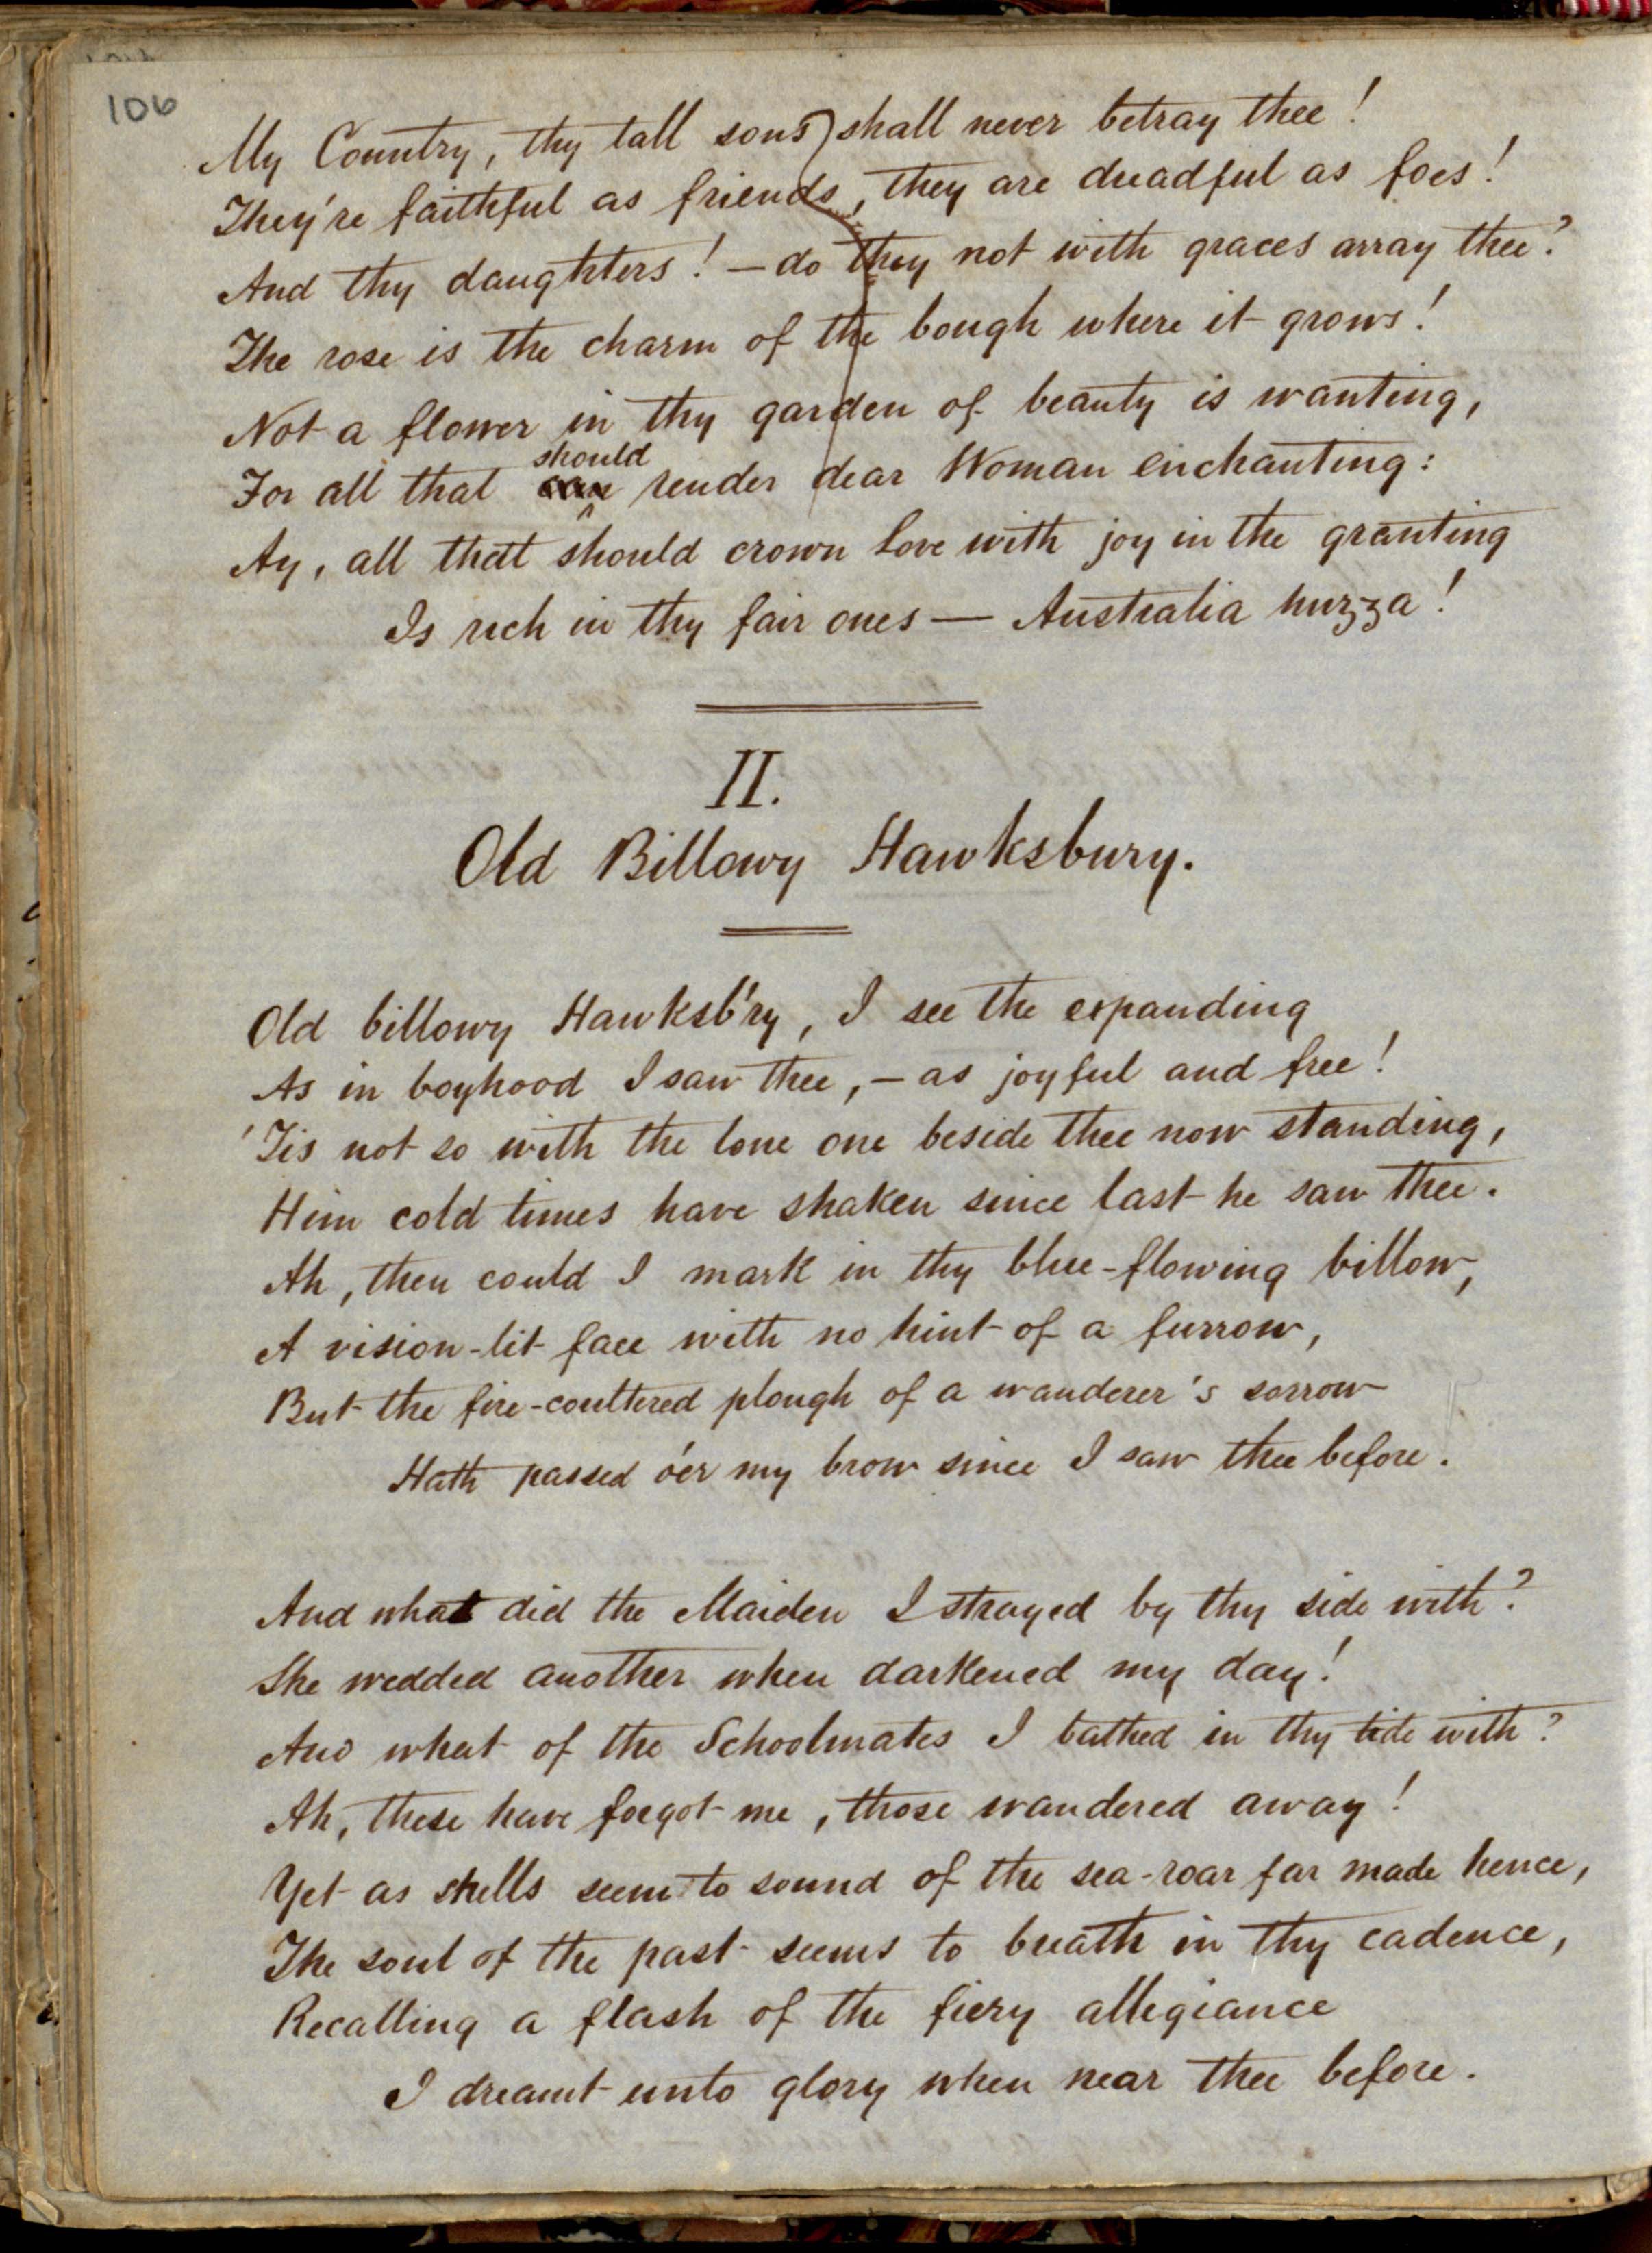 106
My Country, thy tall sons shall never betray thee!
They're faithful as friends, they are dreadful as foes!
And thy daughters! — do they not with graces array thee?
The rose is the charm of the bough where it grows!
Not a flower in thy garden of beauty is wanting,
should
For all that render dear Woman enchanting:
Ay, all that should crown Love with joy in the granting
Is rich in thy fair ones — Australia huzza!
II.
Old Billowy Hawksbury.
Old billowy Hawksb'ry, I see the expanding
As in boyhood I saw thee, — as joyful and free!
'Tis not so with the lone one beside thee now standing,
Him cold times have shaken since last he saw thee.
Ah, then could I mark in thy blue-flowing billow,
A vision-lit face with no hint of a furrow,
But the fire-coultered plough of a wanderer's sorrow
Hath passed o'er my brow since I saw thee before.
And what did the Maiden I strayed by thy side with?
She wedded another when darkened my day!
And what of the Schoolmates I bathed in thy tide with?
Ah, these have forgot me, those wandered away!
Yet as shells seem to sound of the sea-roar far made hence,
The soul of the past seems to breath in thy cadence,
Recalling a flash of the fiery allegiance
I dreamt unto glory when near thee before.